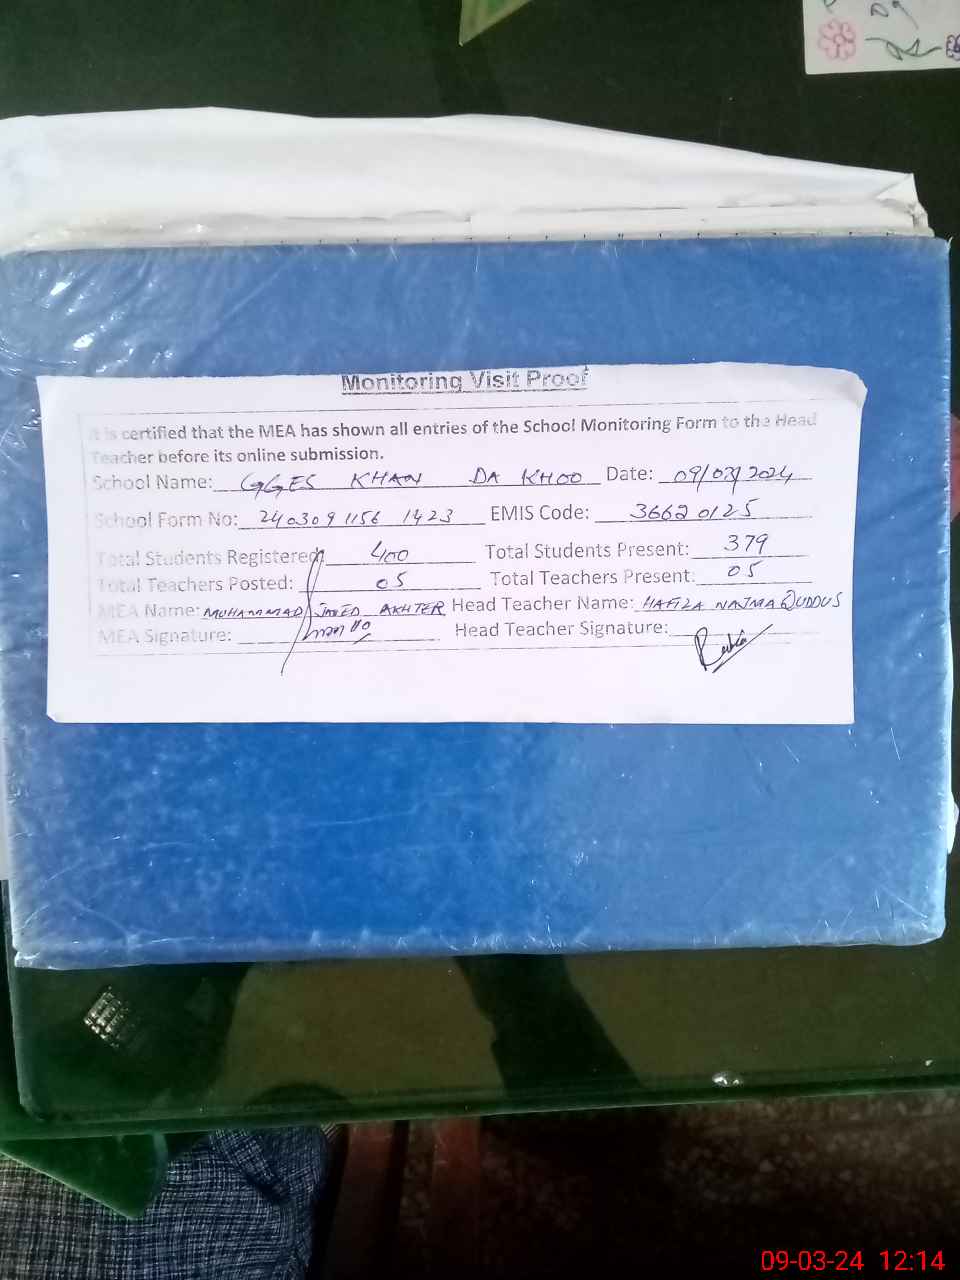 Monitoring Visit Proof
It is certified that the MEA has shown all entries of the School Monitoring Form to the Head
Teacher before its online submission.
School Name: GGES KHAN DA KHOO Date: 09/03/2024
School Form No: 240309 1156 1423 EMIS Code: 36620125
Total Students Registered: 400 Total Students Present: 379
Total Teachers Posted: 05 Total Teachers Present: 05
MEA Name: MUHAMMAD JAVED AKHTER Head Teacher Name: HAFIZA NAJMA QUDDUS
MEA Signature: Head Teacher Signature:
09-03-24 12:14